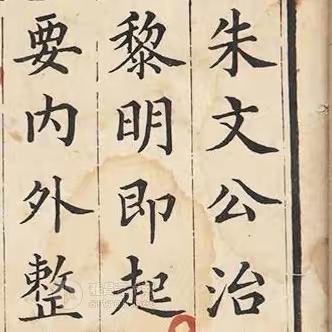 朱文公治
黎明即起
要内外整